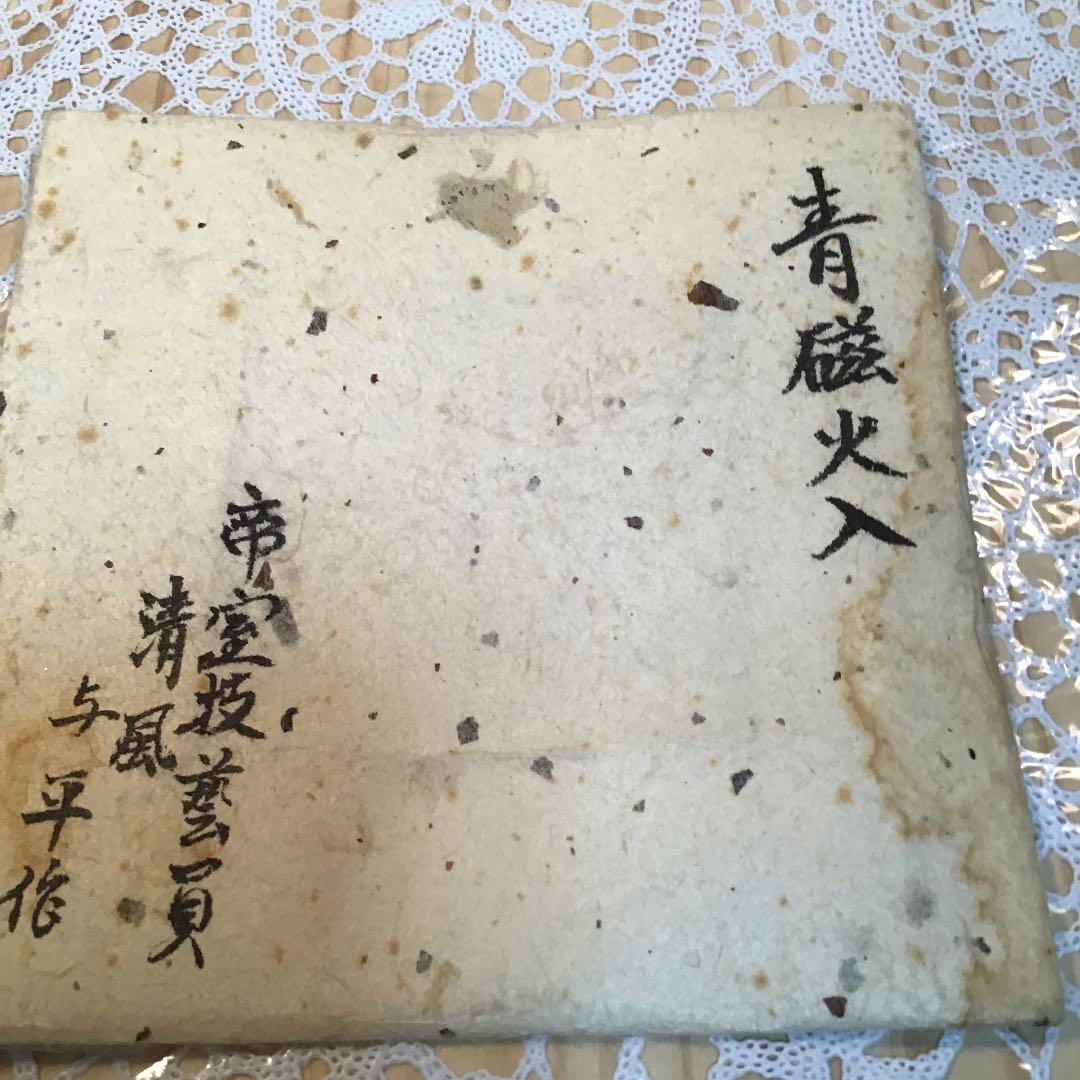 青磁火入
帝室技藝員
清風
与平作